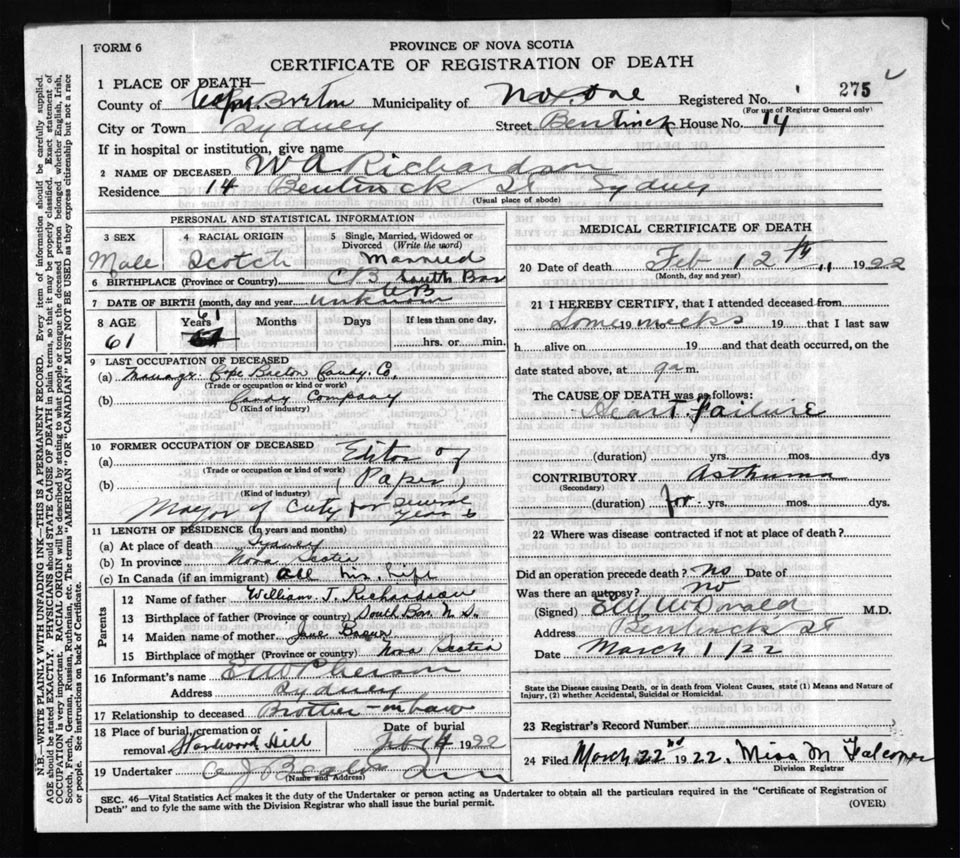 FORM 6
PROVINCE OF NOVA SCOTIA
CERTIFICATE OF REGISTRATION OF DEATH
1 PLACE OF DEATH—
County of Cape Breton Municipality of No. one Registered No. 275
(For use of Registrar General only)
City or Town Sydney Street Bentinck House No. 14
If in hospital or institution, give name
2 NAME OF DECEASED W A Richardson
Residence 14 Bentinck St Sydney
(Usual place of abode)
PERSONAL AND STATISTICAL INFORMATION
3 SEX Male
4 RACIAL ORIGIN Scotch
5 Single, Married, Widowed or Divorced (Write the word) Married
6 BIRTHPLACE (Province or Country) CB South Bar
CB
7 DATE OF BIRTH (month, day and year) unknown
8 AGE 61 Years 61 Months Days If less than one day,
hrs. or min.
9 LAST OCCUPATION OF DECEASED
(a) Manager Cape Breton Candy Co,
(Trade or occupation or kind or work)
(b) Candy Company
(Kind of industry)
10 FORMER OCCUPATION OF DECEASED
(a) Editor of
(Trade or occupation or kind of work)
(b) (Paper)
(Kind of industry)
Mayor of City for several years
11 LENGTH OF RESIDENCE (In years and months)
(a) At place of death Sydney
(b) In province Nova Scotia
(c) In Canada (if an immigrant) all his life
Parents
12 Name of father William J. Richardson
13 Birthplace of father (Province or country) South Bar N S.
14 Maiden name of mother Jane
15 Birthplace of mother (Province or country) Nova Scotia
16 Informant's name
Address Sydney
17 Relationship to deceased Brother-in-law
18 Place of burial, cremation or removal Hardwood Hill Date of burial Feb 14 1922
19 Undertaker A J Beaton
(Name and Address)
MEDICAL CERTIFICATE OF DEATH
20 Date of death Feb 12th 1922
(Month, day and year)
21 I HEREBY CERTIFY, that I attended deceased from
Some 19 weeks 19 that I last saw
h alive on 19 and that death occurred, on the
date stated above, at 9 a m.
The CAUSE OF DEATH was as follows:
Heart Failure
(duration) yrs. mos. dys
CONTRIBUTORY Asthma
(Secondary)
(duration) for yrs. mos. dys.
22 Where was disease contracted if not at place of death?
Did an operation precede death? No Date of
Was there an autopsy? no
(Signed) McDonald M.D.
Address Bentinck St
Date March 1/22
State the Disease causing Death, or in death from Violent Causes, state (1) Means and Nature of
Injury, (2) whether Accidental, Suicidal or Homicidal.
23 Registrar's Record Number
24 Filed March 22nd 1922. Miss M Falconer
Division Registrar
SEC. 46—Vital Statistics Act makes it the duty of the Undertaker or person acting as Undertaker to obtain all the particulars required in the "Certificate of Registration of
Death" and to fyle the same with the Division Registrar who shall issue the burial permit.
(OVER)
N.B.—WRITE PLAINLY WITH UNFADING INK—THIS IS A PERMANENT RECORD. Every item of information should be carefully supplied.
AGE should be stated EXACTLY. PHYSICIANS should STATE CAUSE OF DEATH in plain terms, so that it may be properly classified. Exact statement of
OCCUPATION is very important. RACIAL ORIGIN will be described by stating to what people or tongue the deceased person belonged whether English, Irish,
Scotch, French, German, Russian, Ruthenian, etc. The terms "AMERICAN" OR "CANADIAN" MUST NOT BE USED as they express citizenship but not a race
or people. See instructions on back of Certificate.